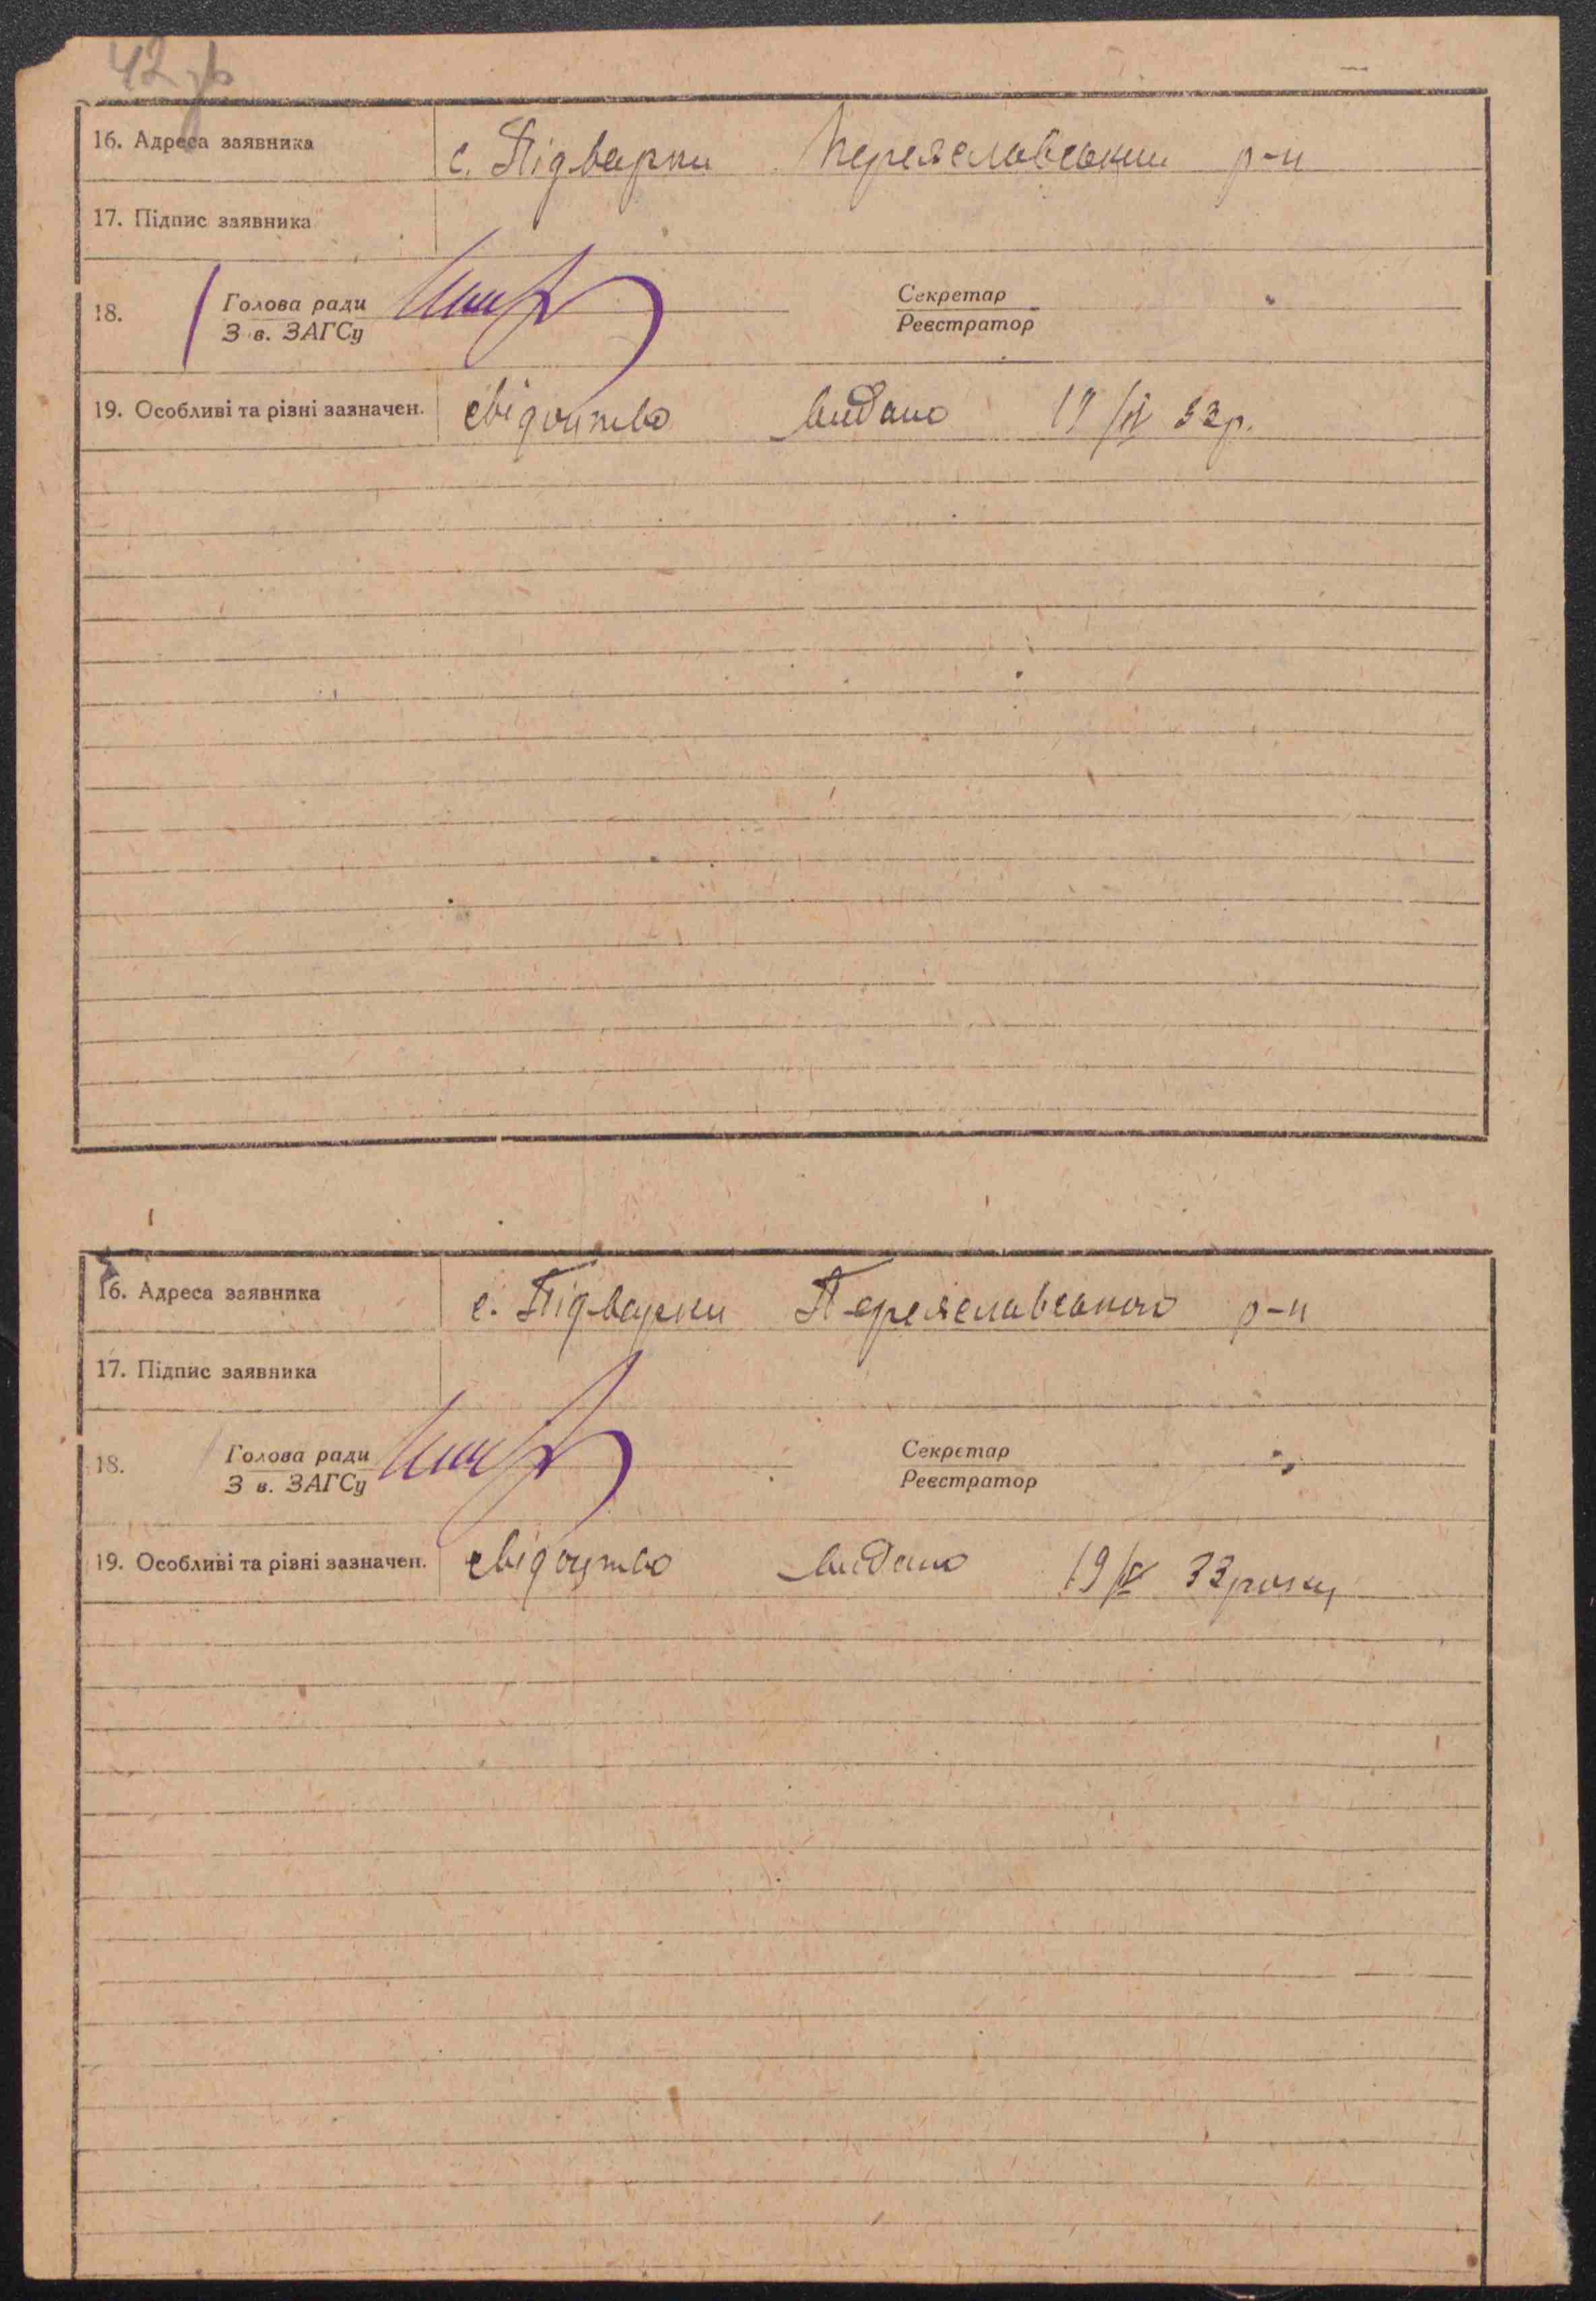 42 зв
16. Адреса заявника с. Підварки Переяславський р-н
17. Підпис заявника
18. Голова ради Секретар
З в. ЗАГСу Реєстратор
19. Особливі та різні зазначен. свідоцтво видано 33р.
16. Адреса заявника с. Підварки Переяславського р-н
17. Підпис заявника
18. Голова ради Секретар
З в. ЗАГСу Реєстратор
19. Особливі та різні зазначен. свідоцтво видано 33 року